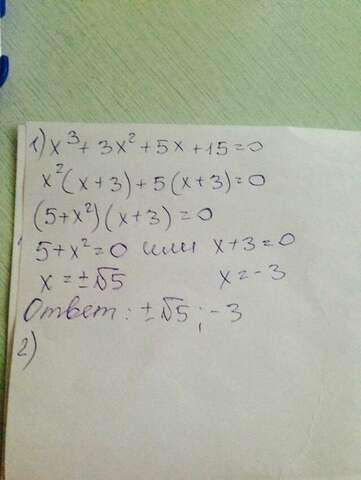 1) x³ + 3x² + 5x + 15 = 0
x²(x+3) + 5(x+3) = 0
(5+x²)(x+3) = 0
5+x²=0 или x+3=0
x = ±√5 x = -3
Ответ: ±√5; -3
2)